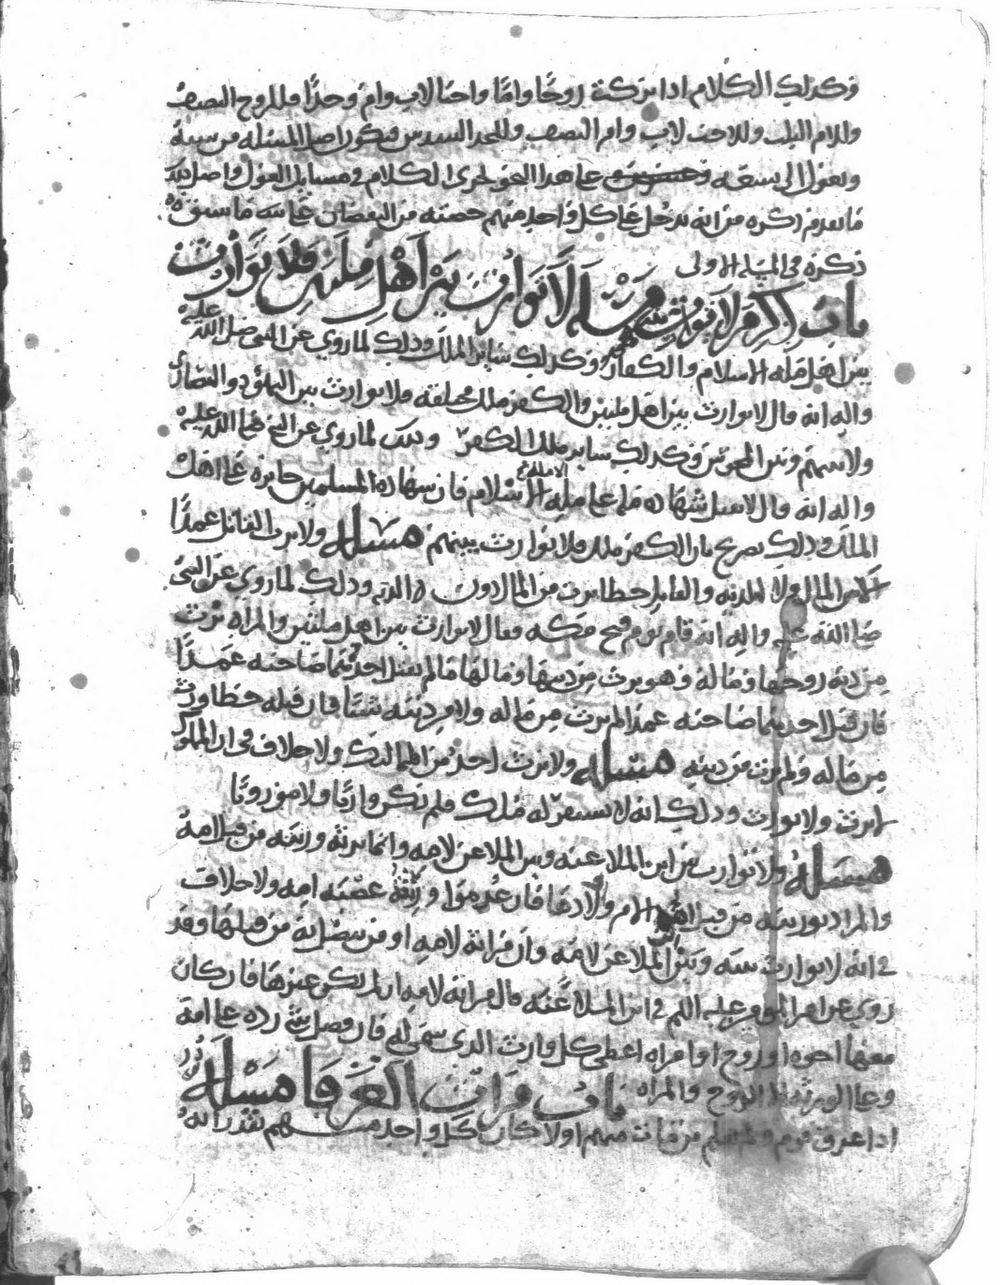 وكذلك الكلام اذا تركت زوجًا وامًا واختا لاب وام وجدًا فللزوج النصف
وللام الثلث وللاخت لاب وام النصف وللجد السدس فيكون اصل المسئله من ستة
وتعول الى تسعه على هذا النحو يجرى الكلام فى مسايل العول واصل
ما تقدم ذكره من انه يدخل على كل واحد منهم حصته من النقصان على ما سبق
ذكره فى المسئله الاولى
باب ذكر من لا يورث مسئله لا توارث بين اهل ملتين فلا توارث
بين اهل مله الاسلام والكفار وكذلك سائر الملل وذلك لما روي عن النبى صلى الله عليه
واله انه قال لا توارث بين اهل ملتين والكفر ملل مختلفه فلا توارث بين اليهود والنصارى
ولا بينهم وبين المجوس وكذلك سائر ملل الكفر وذلك لما روي عن النبي صلى الله عليه
واله انه قال لا تقبل شهادة مله على مله الا الاسلام فان شهادة المسلمين جايزه على اهل
الملل وذلك تصريح بان الكفر ملل فلا توارث بينهم مسئله ولا يرث القاتل عمدًا
لا من المال ولا من الديه والقاتل خطا يرث من المال دون الديه وذلك لما روي عن النبى
صلى الله عليه واله انه قام يوم فتح مكه فقال لا توارث بين اهل ملتين والمراه ترث
من دية زوجها وماله وهو يرث من ديتها ومالها ما لم يقتل احدهما صاحبه عمدًا
فان قتل احدهما صاحبه عمدا لم يرث من ماله ولا من ديته شيئا فان قتله خطا ورث
من ماله ولم يرث من ديته مسئله ولا يرث احد من المماليك ولا خلاف فى ان المملوك
لا يرث ولا يورث وذلك انه لا يستقر له ملك فلم يكن وارثا ولا موروثا
مسئله ولا توارث بين ابن الملاعنه وبين الملاعن لامه وانما يرثه ورثته من قبل امه
والمراد بورثته من قبل الام اولادها فان عدموا ورثه عصبة امه ولا خلاف
فى انه لا توارث بينه وبين الملاعن لامه وان قرابته لامه او من يتصل به من قبلها وقد
روي عن امير المومنين عليه السلم فى ابن الملاعنه مال ابنه لامه ان لم يكن غيرها فان كان
معها اخوه او زوج او امراه اعطى كل وارث الذى سمى له فان فضل شى رده على امه
وعلى الورثه الا الزوج والمراه باب فرائض الغرقا مسئله
اذا غرق قوم ولم يعلم من مات منهم اولا كان كل واحد منهم يقدر انه